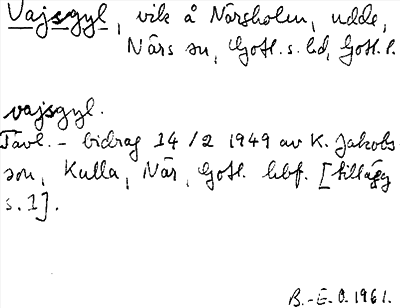 Vajsgyl, vik å Närsholm, udde,
Närs sn, Gotl. s. hd, Gotl. l.
vajsgyl.
Tävl.-bidrag 14/2 1949 av K. Jakobs-
son, Kulla, När, Gotl. hbf. [tillägg
s. 1].
B.-E. O. 1961.